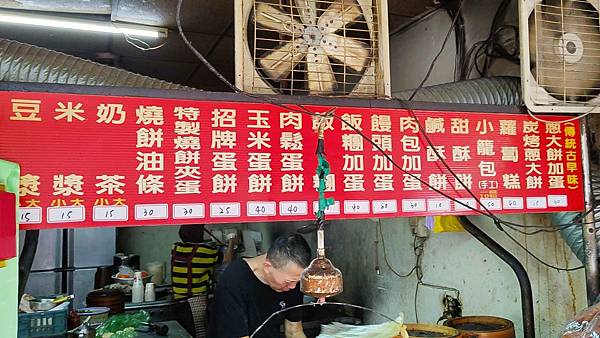 豆漿 大小 15
米漿 大小 15
奶茶 大小 15
燒餅油條 30
特製燒餅夾蛋 30
招牌蛋餅 25
玉米蛋餅 40
肉鬆蛋餅 40
飯
飯糰加蛋 40
饅頭加蛋 20
肉包加蛋 30
鹹酥餅
甜酥餅
小籠包(手工)
蘿蔔糕 40
炭烤蔥大餅
蔥大餅加蛋
(傳統古早味)
手工
古早味